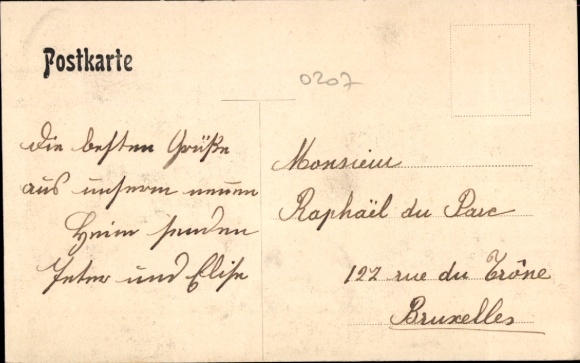 Postkarte
0207
Die besten Grüße
aus unserm neuen
Heim senden
Peter und Elise
Monsieur
Raphaël du Parc
127 rue du Trône
Bruxelles